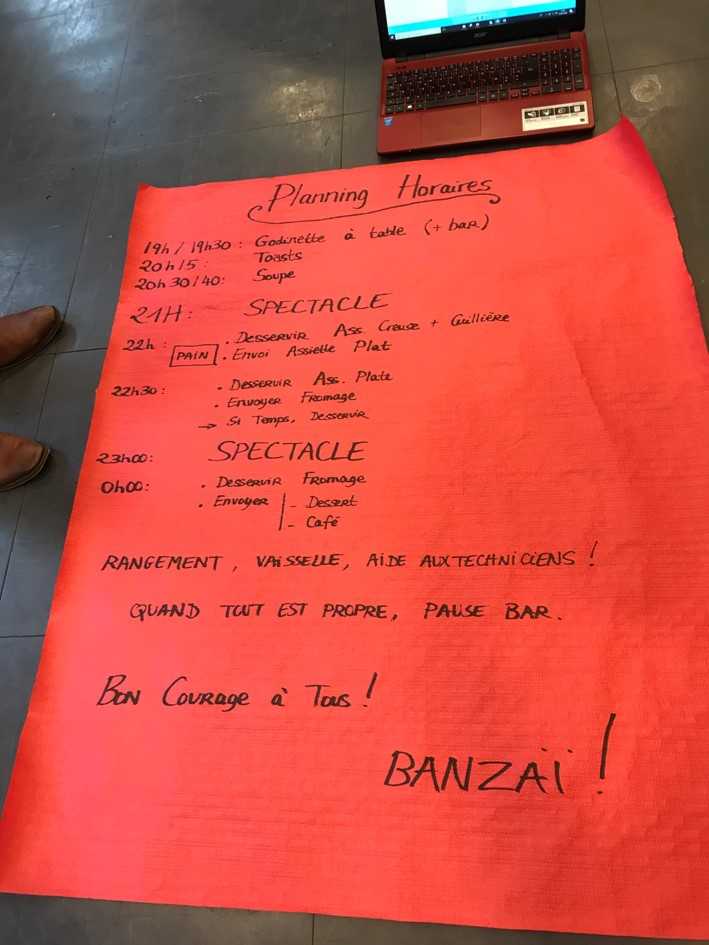 acer
Planning Horaires
19h / 19h30 : Godinette à table (+ bar)
20h15 : Toasts
20h30/40: Soupe
21H: SPECTACLE
22h : . Desservir Ass. Creuse + Cuillière
PAIN . Envoi Assiette Plat
22h30: . Desservir Ass. Plate
. Envoyer Fromage
→ Si Temps, Desservir
23h00: SPECTACLE
0h00: . Desservir Fromage
. Envoyer - Dessert
- Café
RANGEMENT, VAISSELLE, AIDE AUX TECHNICIENS !
QUAND TOUT EST PROPRE, PAUSE BAR.
Bon Courage à Tous !
BANZAÏ !